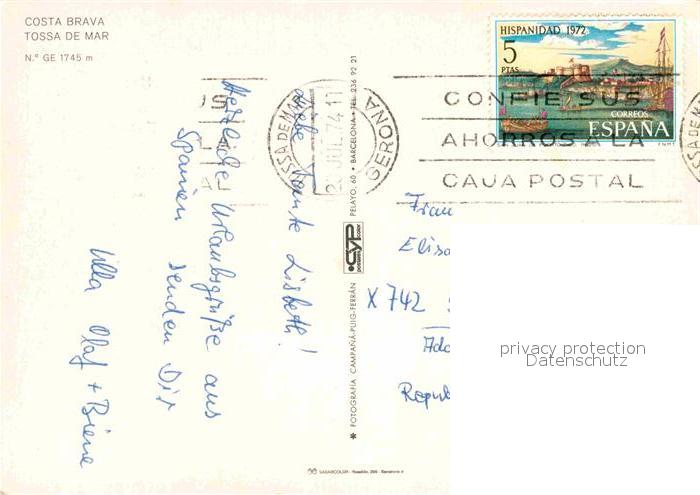 COSTA BRAVA
TOSSA DE MAR
N.° GE 1745 m
HISPANIDAD 1972
5
PTAS
CORREOS
ESPAÑA
CONFIE SUS
AHORROS A LA
CAJA POSTAL
GERONA
Liebe Tante Lisbeth!
Herzliche Urlaubsgrüße aus
Spanien senden Dir
Ulla Olaf + Biene
PELAYO, 60 • BARCELONA • TEL. 236 92 21
CYP
FOTOGRAFIA CAMPAÑÁ-PUIG-FERRÁN
Frau
Elisa
X 742
Ado
Repub
privacy protection
Datenschutz